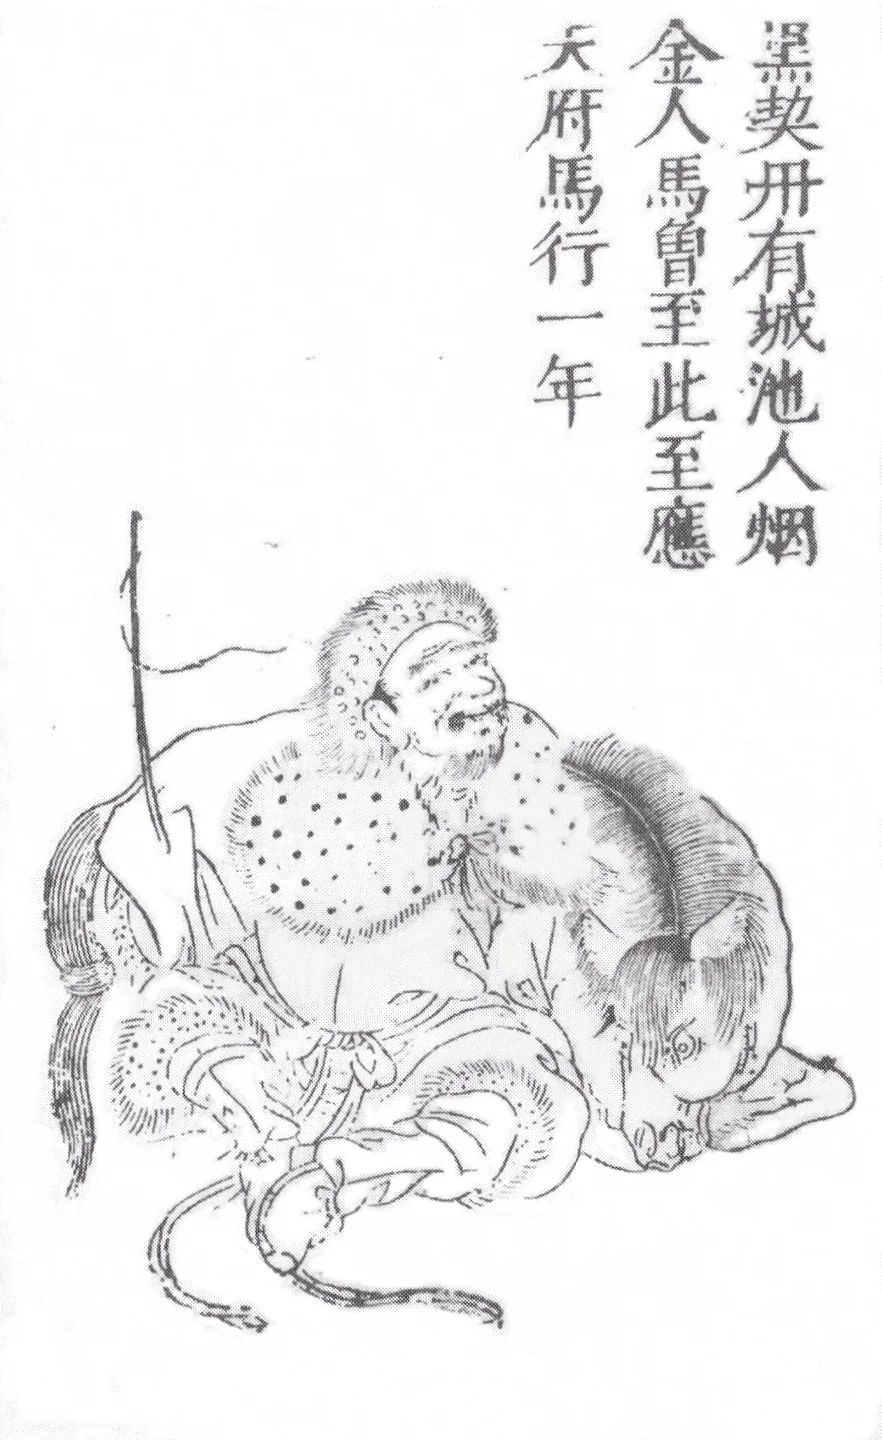 黑契丹有城池人烟
金人馬曾至此至應
天府馬行一年